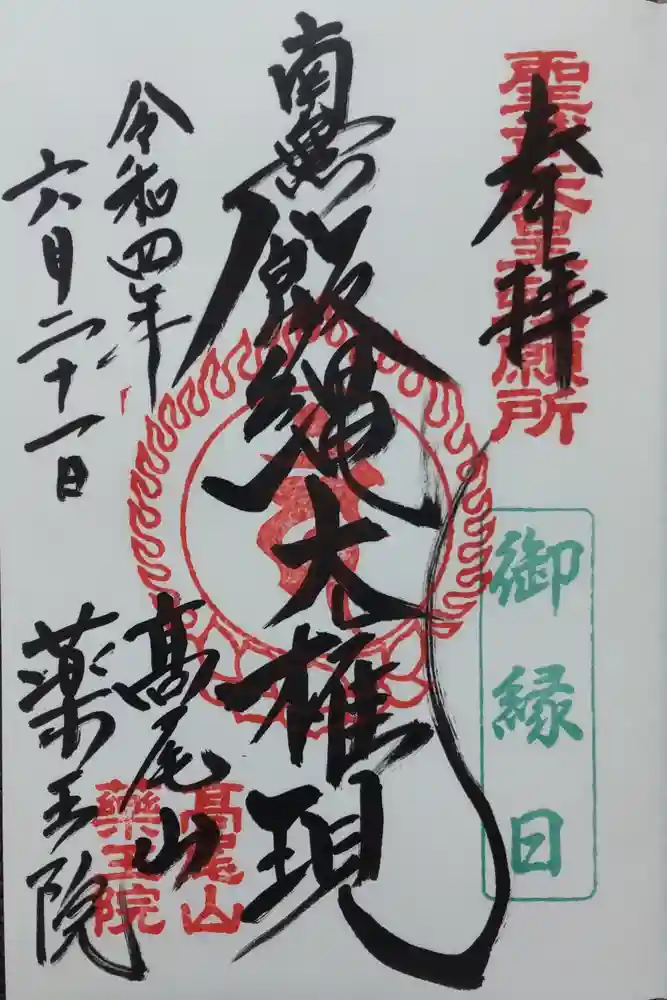 奉拝
聖武天皇勅願所
御縁日
南無飯縄大権現
令和四年
六月二十一日
髙尾山
薬王院
髙尾山
藥王院